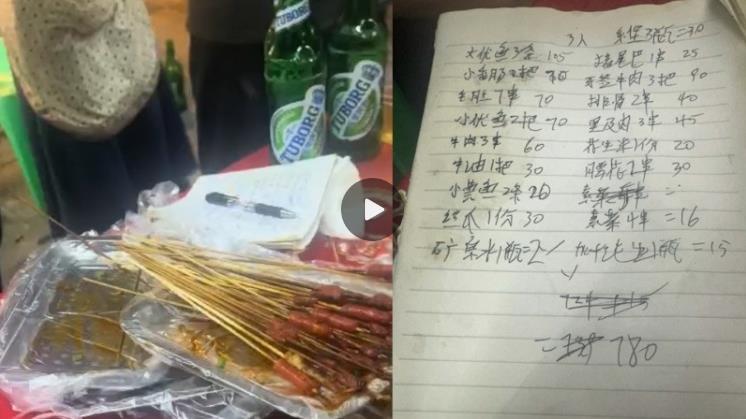 TUBORG
TUBORG
3人 乐堡3瓶=30
大优鱼3条 105 猪尾巴1串 25
小香肠2把 牙签牛肉3把 90
毛肚7串 70 排骨2串 40
小优鱼2把 70 里及肉3串 45
牛肉3串 60 花生米1份 20
牛油1把 30 腰花2串 30
小黄鱼2条 20
丝瓜1份 30 素菜4串=16
矿泉水1瓶=2 加多宝1瓶=15
780